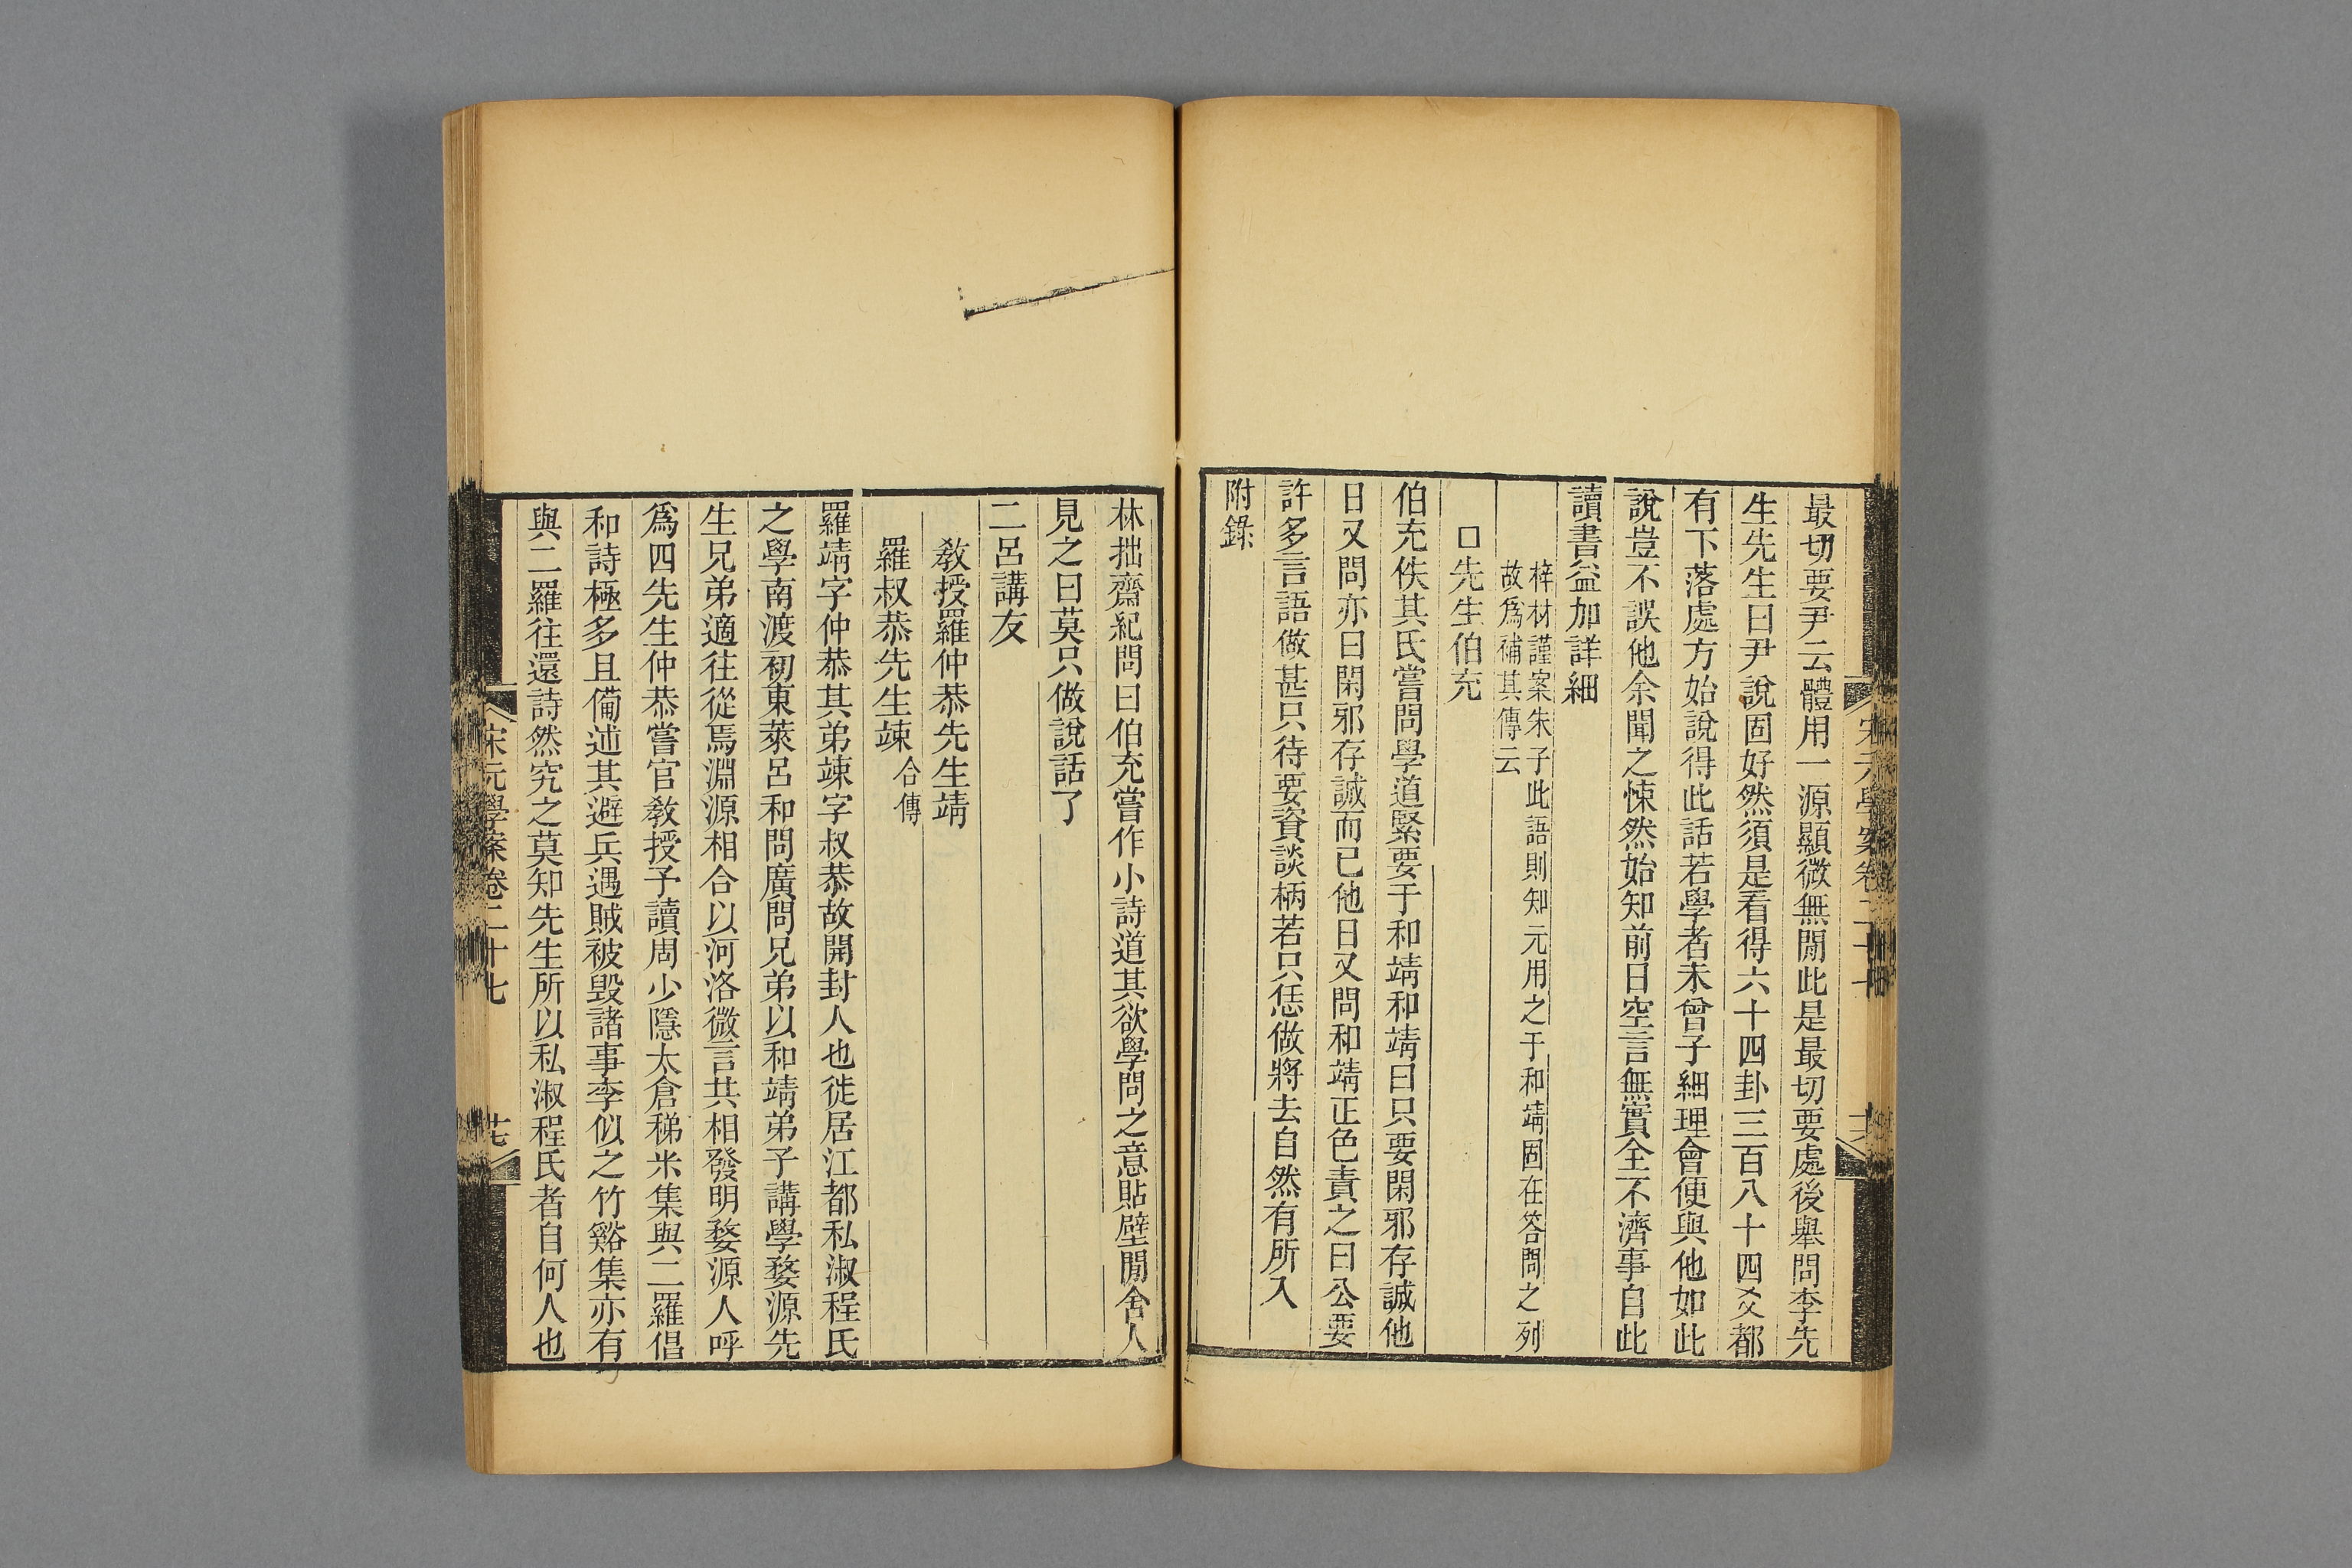 最切要尹云體用一源顯微無閒此是最切要處後舉問李先
生先生曰尹說固好然須是看得六十四卦三百八十四爻都
有下落處方始說得此話若學者未曾子細理會便與他如此
說豈不誤他余聞之悚然始知前日空言無實全不濟事自此
讀書益加詳細
梓材謹案朱子此語則知元用之于和靖固在答問之列
故爲補其傳云
□先生伯充
伯充佚其氏嘗問學道緊要于和靖和靖曰只要閑邪存誠他
日又問亦曰閑邪存誠而已他日又問和靖正色責之曰公要
許多言語做甚只待要資談柄若只恁做將去自然有所入
附錄
林拙齋紀問曰伯充嘗作小詩道其欲學問之意貼壁閒舍人
見之曰莫只做說話了
二呂講友
教授羅仲恭先生靖
羅叔恭先生竦合傳
羅靖字仲恭其弟竦字叔恭故開封人也徙居江都私淑程氏
之學南渡初東萊呂和問廣問兄弟以和靖弟子講學婺源先
生兄弟適往從焉淵源相合以河洛微言共相發明婺源人呼
爲四先生仲恭嘗官教授予讀周少隱太倉稊米集與二羅倡
和詩極多且備述其避兵遇賊被毀諸事李似之竹谿集亦有
與二羅往還詩然究之莫知先生所以私淑程氏者自何人也
宋元學案卷二十七